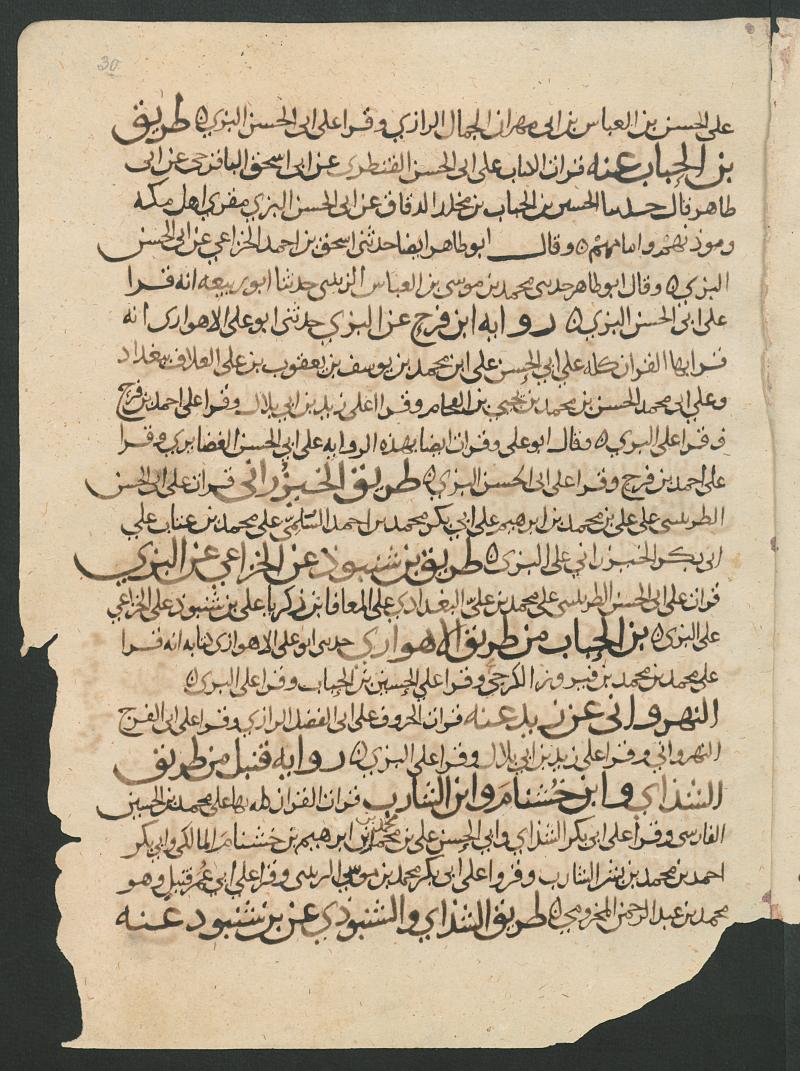 30
على الحسن بن العباس بن ابى مهران الجمال الرازي وقرا على ابى الحسن البزي ٥ طريق
بن الحباب عنه قرات الاداب على ابى الحسن القنطرى عن ابى اسحق الباقرحى عن ابى
طاهر قال حدثنا الحسين بن الحباب بن مخلد الدقاق عن ابى الحسن البزي مقرى اهل مكه
وموذنهم وامامهم ٥ وقال ابو طاهر ايضا حدثنى اسحق بن احمد الخزاعي عن ابى الحسن
البزي ٥ وقال ابو طاهر حدثنى محمد بن موسى بن العباس الزينبى حدثنا ابو ربيعه انه قرا
على ابى الحسن البزي ٥ روايه ابن فرج عن البزي حدثنى ابو على الاهوازى انه
قرا بها القران كله على ابي الحسن على ابن محمد بن يوسف بن يعقوب بن على العلاف ببغداد
وعلى ابى محمد الحسن بن محمد بن يحيى بن الفحام وقرا على زيد بن ابي بلال وقرا على احمد بن فرج
وقرا على البزي ٥ وقال ابو على وقرات ايضا بهذه الروايه على ابي الحسن الغضايري وقرا
على احمد بن فرج وقرا على ابى الحسن البزي ٥ طريق الخيزراني قرات على ابى الحسن
الطرىلسى على على بن محمد بن ابرهيم على ابي بكر محمد بن احمد السلمي على محمد بن عتاب علي
ابى بكر الخيزراني على البزي ٥ طريق بن شنبوذ عن الخزاعي عن البزي
قرات على ابى الحسن الطريلسى على محمد بن على البغدادي على المعافا بن زكريا على بن شنبوذ على الخزاعي
على البزي ٥ بن الحباب من طريق الاهوازي حدثنى ابو على الاهوازى كتابه انه قرا
على محمد بن محمد بن فيروز الكرجي وقرا على الحسين بن الحباب وقرا على البزي ٥
النهرواني عن زيد عنه قرات الحروف على ابى الفضل الرازي وقرا على ابى الفرج
النهرواني وقرا على زيد بن ابي بلال وقرا على البزي ٥ روايه قنبل من طريق
الشذاي وابن خشنام وابن الشارب قرات القران كله بها على محمد بن الحسين
الفارسى وقرا على ابى بكر الشذاي وابي الحسن على بن محمد بن ابرهيم بن خشنام المالكى وابي بكر
احمد بن محمد بن بشر الشارب وقروا على ابى بكر محمد بن موسى الزينبى وقرا على ابي عمر قنبل وهو
محمد بن عبد الرحمن المخزومي ٥ طريق الشذاي والشنبوذي عن بن شنبوذ عنه